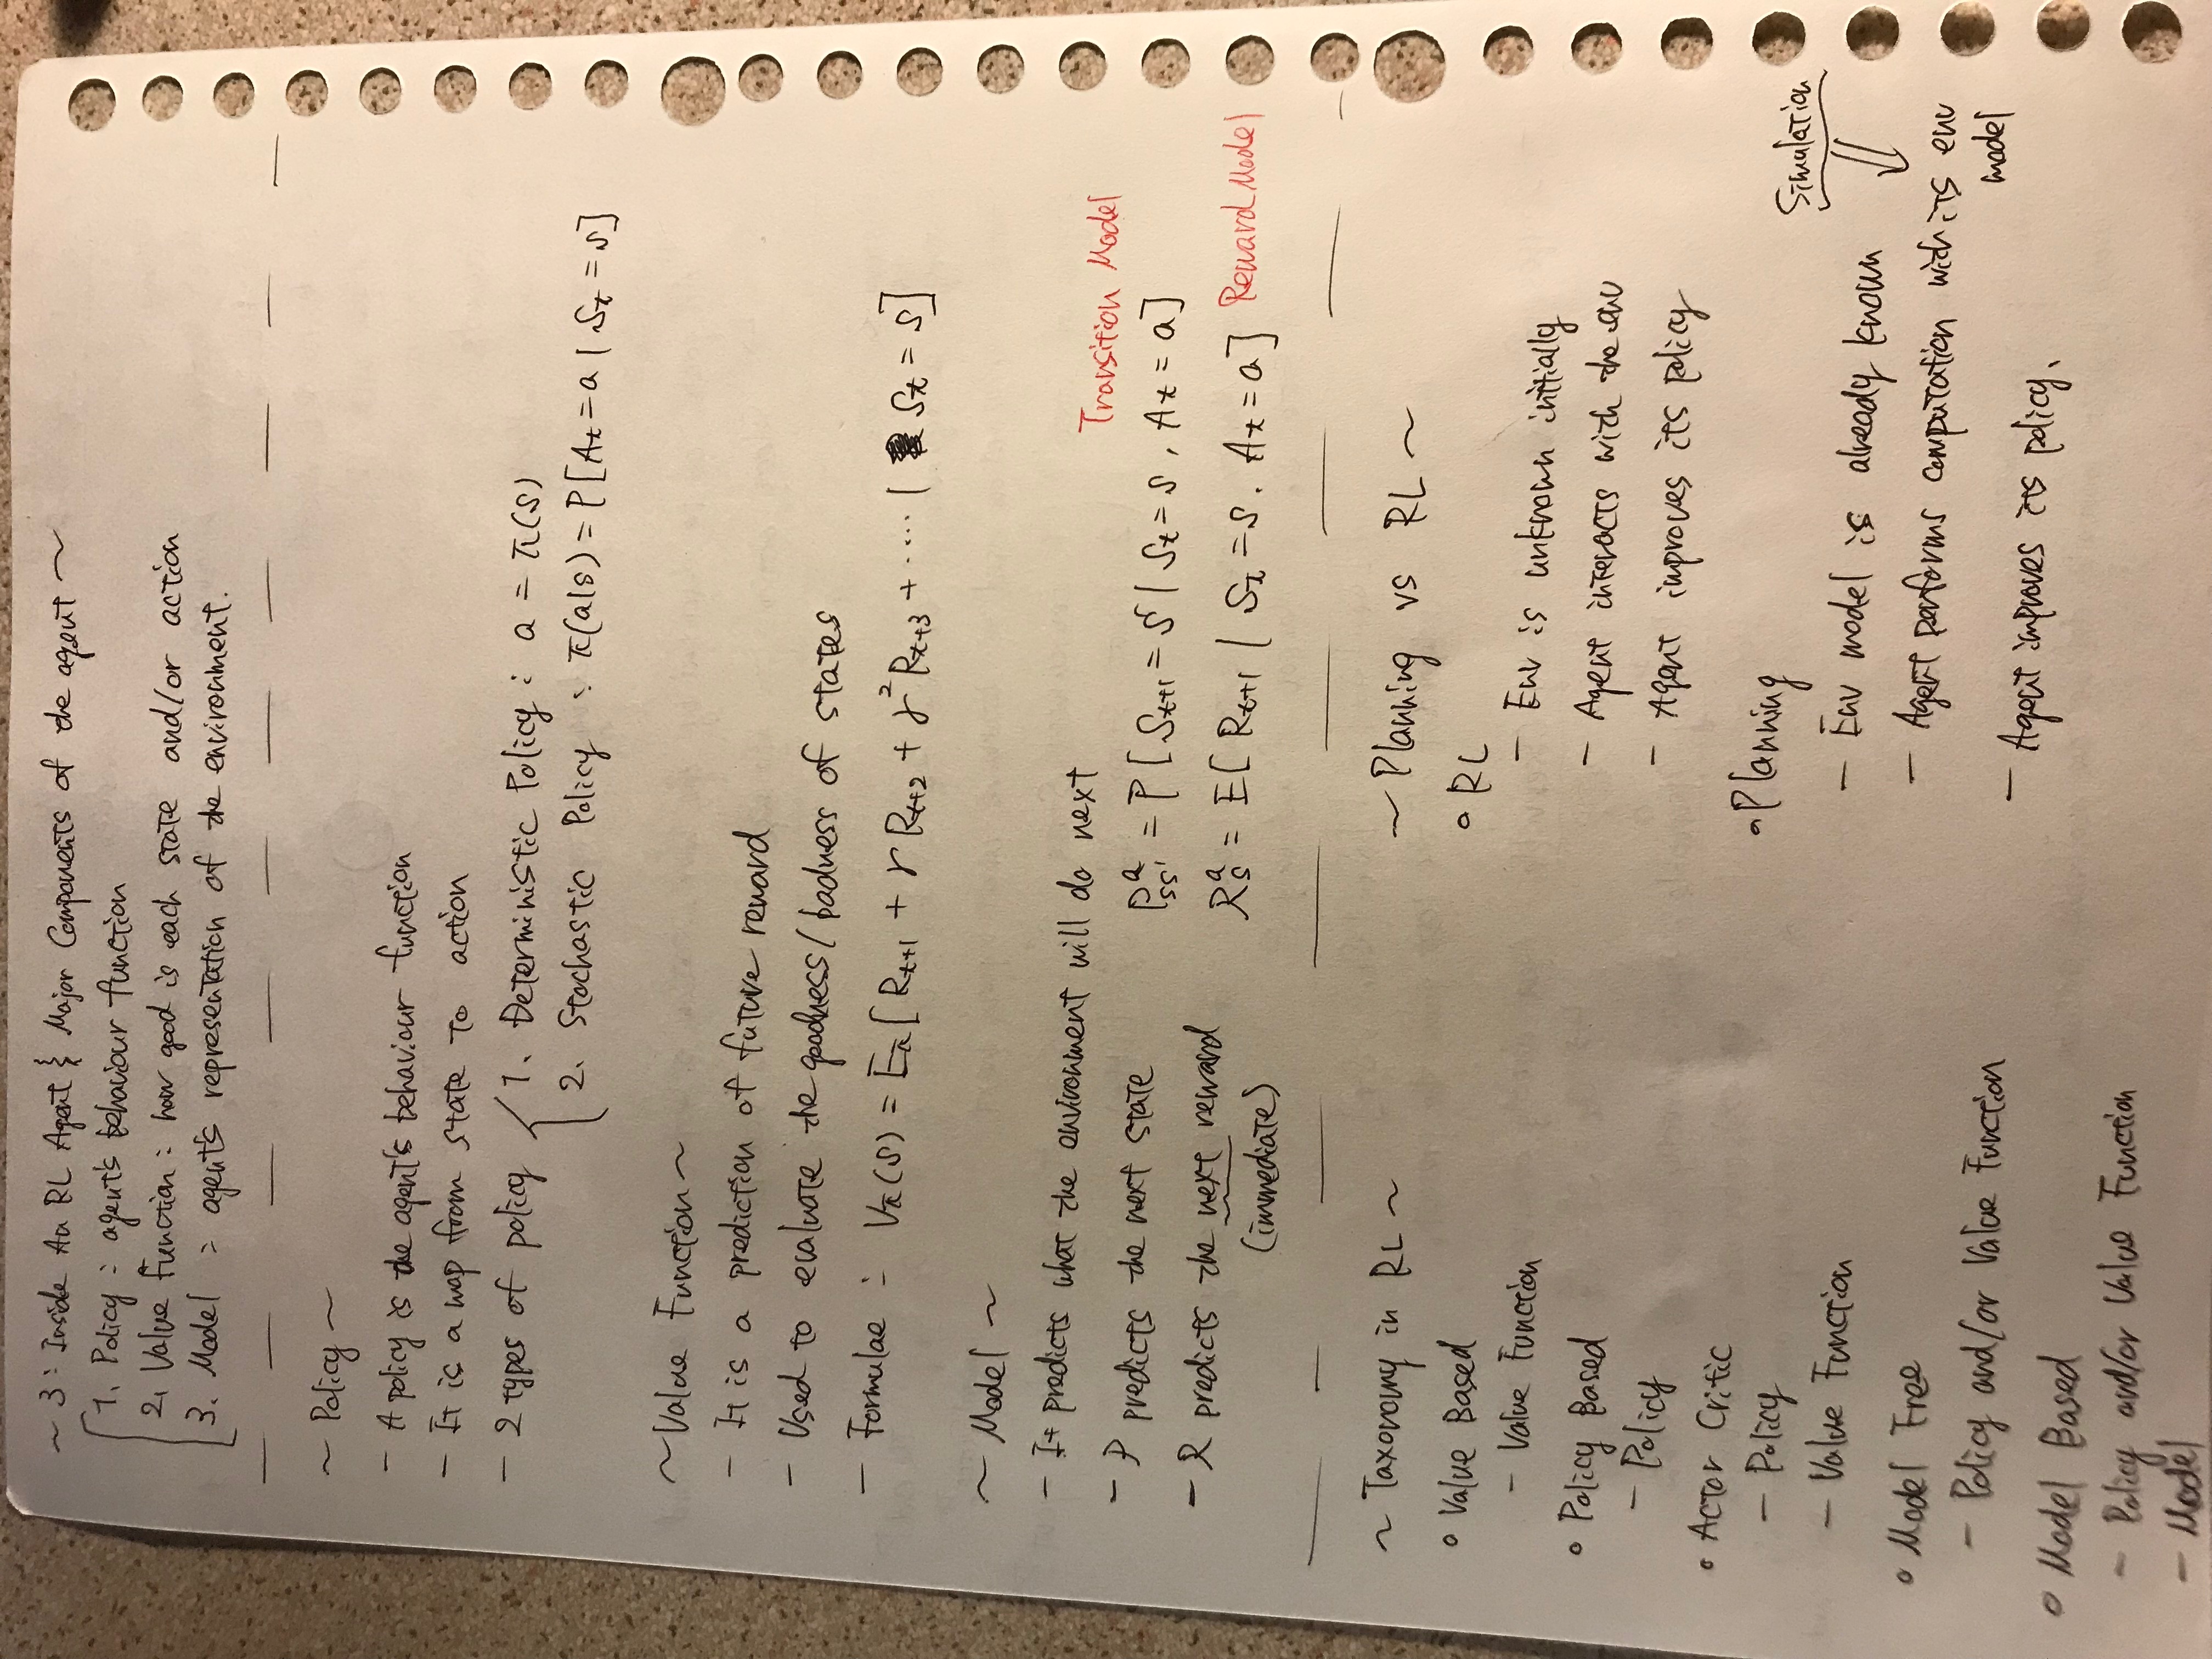 ~ 3: Inside An RL Agent } Major Components of the agent ~
1. Policy : agent's behaviour function
2. Value Function : how good is each state and/or action
3. Model : agent's representation of the environment.
~ Policy ~
- A policy is the agent's behaviour function
- It is a map from state to action
- 2 types of policy
1. Deterministic Policy : a = π(s)
2. Stochastic Policy : π(a|s) = P[At = a | St = s]
~ Value Function ~
- It is a prediction of future reward
- Used to evaluate the goodness/badness of states
- Formulae : Vπ(s) = Eπ[Rt+1 + γRt+2 + γ²Rt+3 + ···· | St = s]
~ Model ~
- It predicts what the environment will do next
Transition Model
- P predicts the next state Pᵃss' = P[St+1 = s' | St = s, At = a]
- R predicts the next reward Rᵃs = E[Rt+1 | St = s, At = a] Reward Model
(immediate)
~ Taxonomy in RL ~
○ Value Based
- Value Function
○ Policy Based
- Policy
○ Actor Critic
- Policy
- Value Function
○ Model Free
- Policy and/or Value Function
○ Model Based
- Policy and/or Value Function
- Model
~ Planning vs RL ~
○ RL
- Env is unknown initially
- Agent interacts with the env
- Agent improves its policy
○ Planning
Simulation
- Env model is already known
- Agent performs computation with its env
model
- Agent improves its policy.